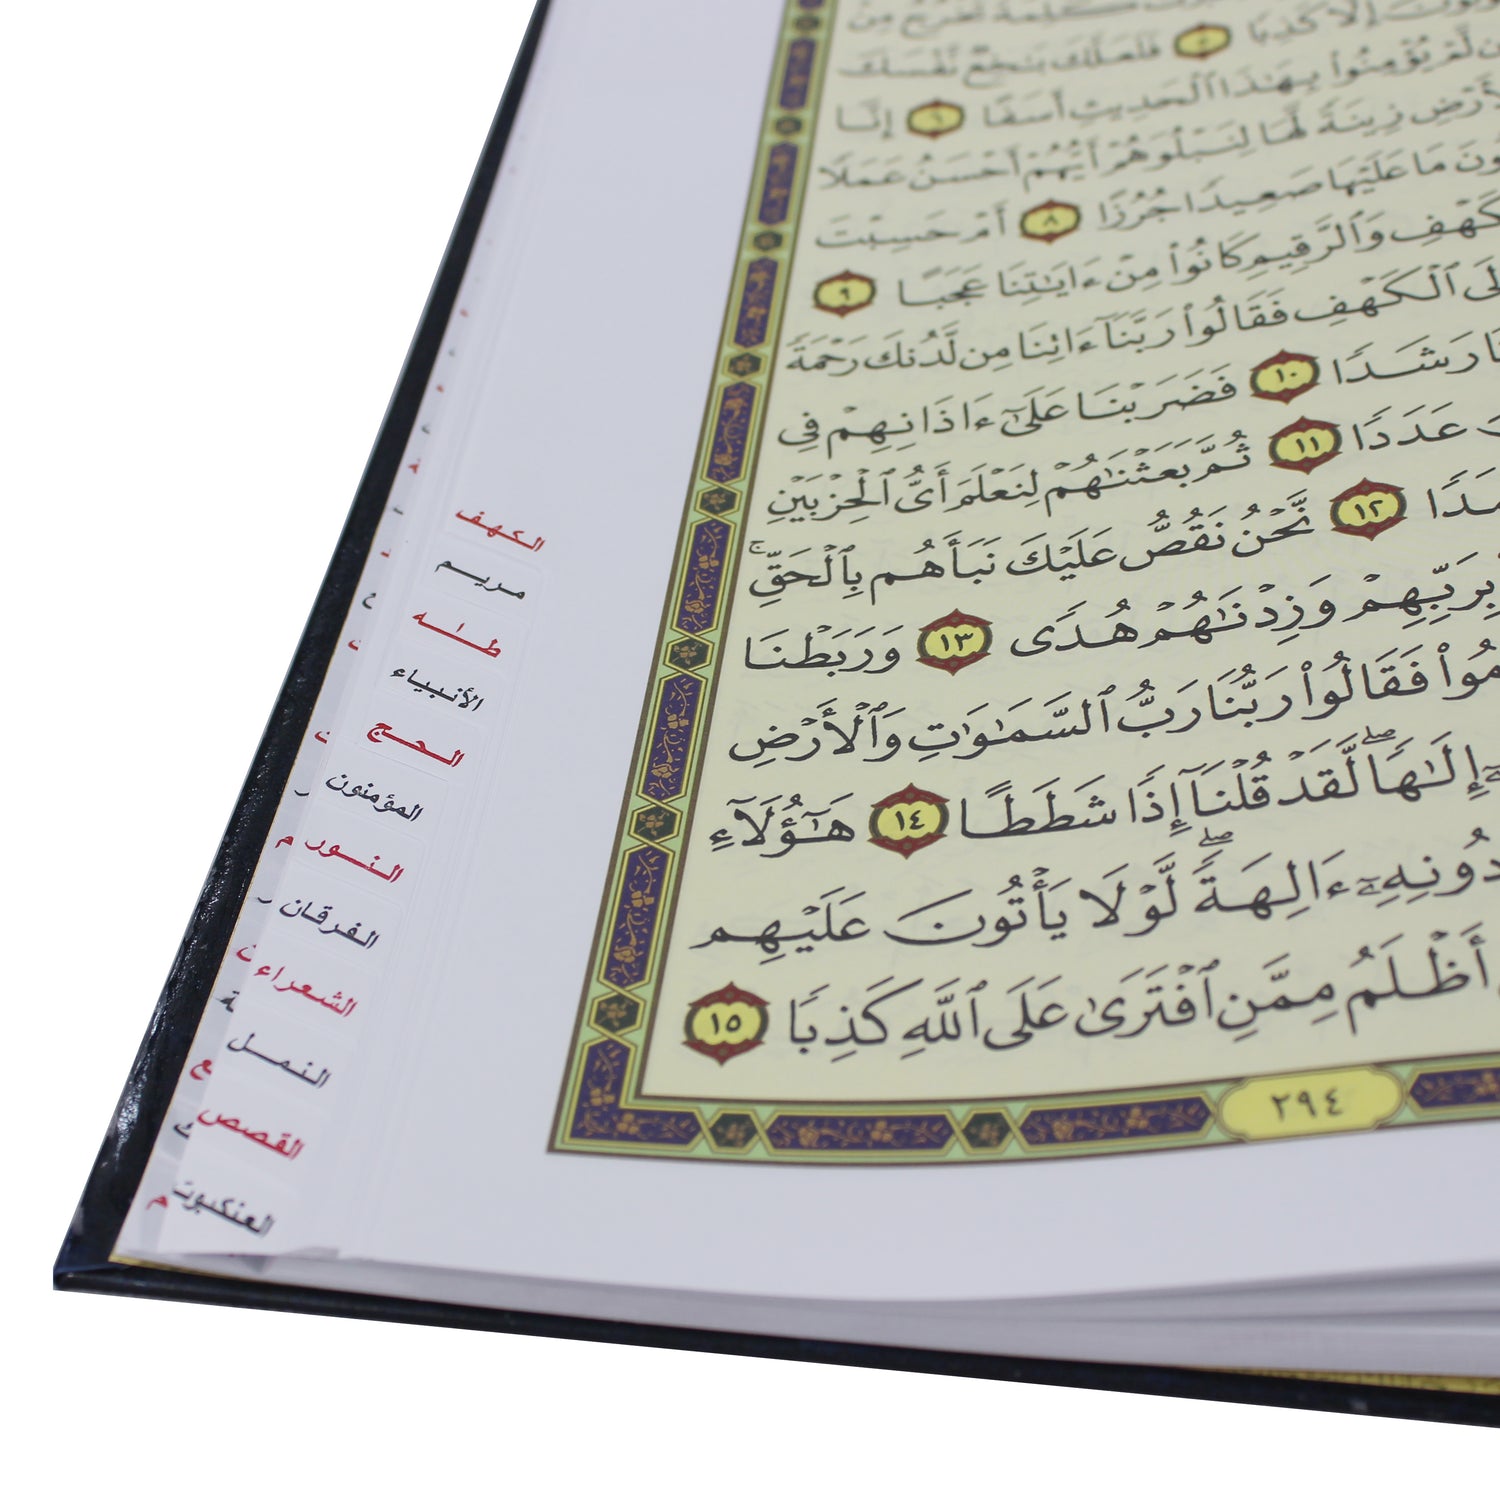 كَلِمَةً تَخْرُجُ مِنْ
إِلَّا كَذِبًا ٥ فَلَعَلَّكَ بَٰخِعٌ نَّفْسَكَ
لَّمْ يُؤْمِنُوا۟ بِهَٰذَا ٱلْحَدِيثِ أَسَفًا ٦ إِنَّا
زِينَةً لَّهَا لِنَبْلُوَهُمْ أَيُّهُمْ أَحْسَنُ عَمَلًا
مَا عَلَيْهَا صَعِيدًا جُرُزًا ٨ أَمْ حَسِبْتَ
وَٱلرَّقِيمِ كَانُوا۟ مِنْ ءَايَٰتِنَا عَجَبًا ٩
ٱلْكَهْفِ فَقَالُوا۟ رَبَّنَآ ءَاتِنَا مِن لَّدُنكَ رَحْمَةً
رَشَدًا ١٠ فَضَرَبْنَا عَلَىٰٓ ءَاذَانِهِمْ فِى
عَدَدًا ١١ ثُمَّ بَعَثْنَٰهُمْ لِنَعْلَمَ أَىُّ ٱلْحِزْبَيْنِ
١٢ نَّحْنُ نَقُصُّ عَلَيْكَ نَبَأَهُم بِٱلْحَقِّ ۚ
بِرَبِّهِمْ وَزِدْنَٰهُمْ هُدًى ١٣ وَرَبَطْنَا
فَقَالُوا۟ رَبُّنَا رَبُّ ٱلسَّمَٰوَٰتِ وَٱلْأَرْضِ
إِلَٰهًا ۖ لَّقَدْ قُلْنَآ إِذًا شَطَطًا ١٤ هَٰٓؤُلَآءِ
دُونِهِۦٓ ءَالِهَةً ۖ لَّوْلَا يَأْتُونَ عَلَيْهِم
أَظْلَمُ مِمَّنِ ٱفْتَرَىٰ عَلَى ٱللَّهِ كَذِبًا ١٥
٢٩٤
الكهف
مريم
طه
الأنبياء
الحج
المؤمنون
النور
الفرقان
الشعراء
النمل
القصص
العنكبوت